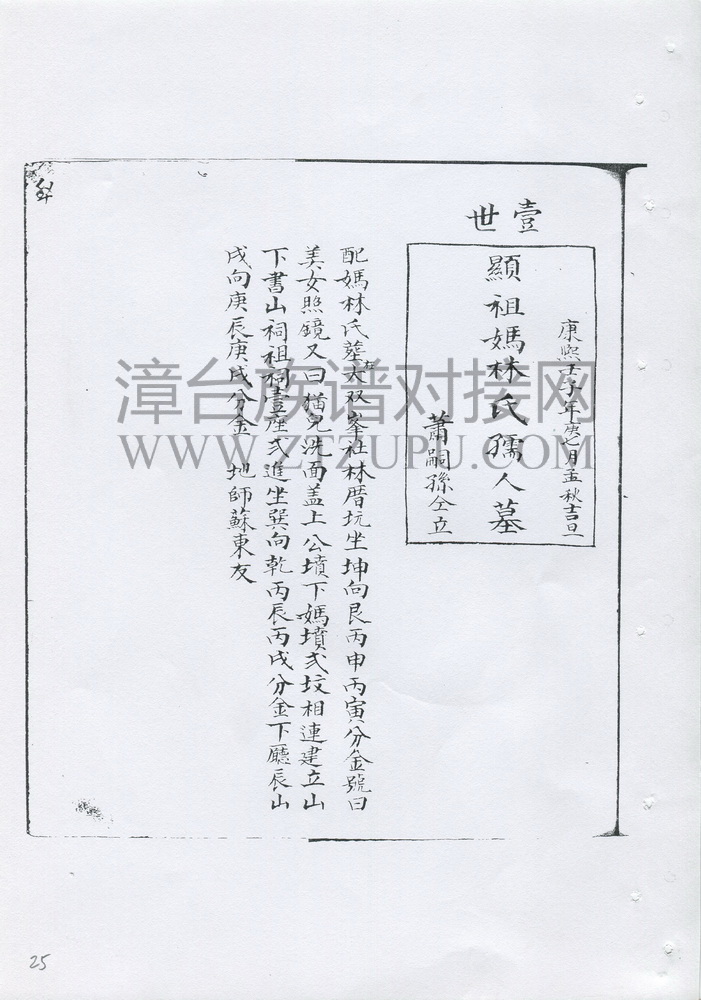 壹世
康熙壬子年庚七月孟秋吉旦
顯祖媽林氏孺人墓
蕭嗣孫仝立
配媽林氏葬在大双峯社林厝坑坐坤向艮丙申丙寅分金號曰
美女照鏡又曰猫兒洗面盖上公墳下媽墳弍坟相連建立山
下書山祠祖祠壹座弍進坐巽向乾丙辰丙戌分金下廳辰山
戌向庚辰庚戌分金 地師蘇東友
漳台族谱对接网
WWW.ZTZUPU.COM
25